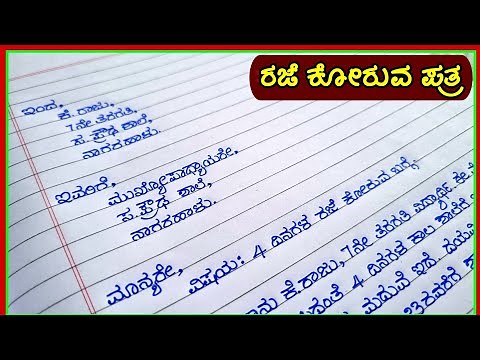 ರಜೆ ಕೋರುವ ಪತ್ರ
ಇಂದ,
ಕೆ. ರಾಜು,
7ನೇ ತರಗತಿ,
ಸ. ಪ್ರೌಢ ಶಾಲೆ,
ನಾಗರಹಾಳು.
ಇವರಿಗೆ,
ಮುಖ್ಯೋಪಾಧ್ಯಾಯರೇ,
ಸ. ಪ್ರೌಢ ಶಾಲೆ,
ನಾಗರಹಾಳು.
ಮಾನ್ಯರೇ,
ವಿಷಯ: 4 ದಿನಗಳ ರಜೆ ಕೋರುವ ಬಗ್ಗೆ.
ಕೆ. ರಾಜು, 7ನೇ ತರಗತಿ ವಿದ್ಯಾರ್ಥಿ
4 ದಿನಗಳ ಕಾಲ ಶಾಲೆಗೆ
ಮದುವೆ ಇದೆ.